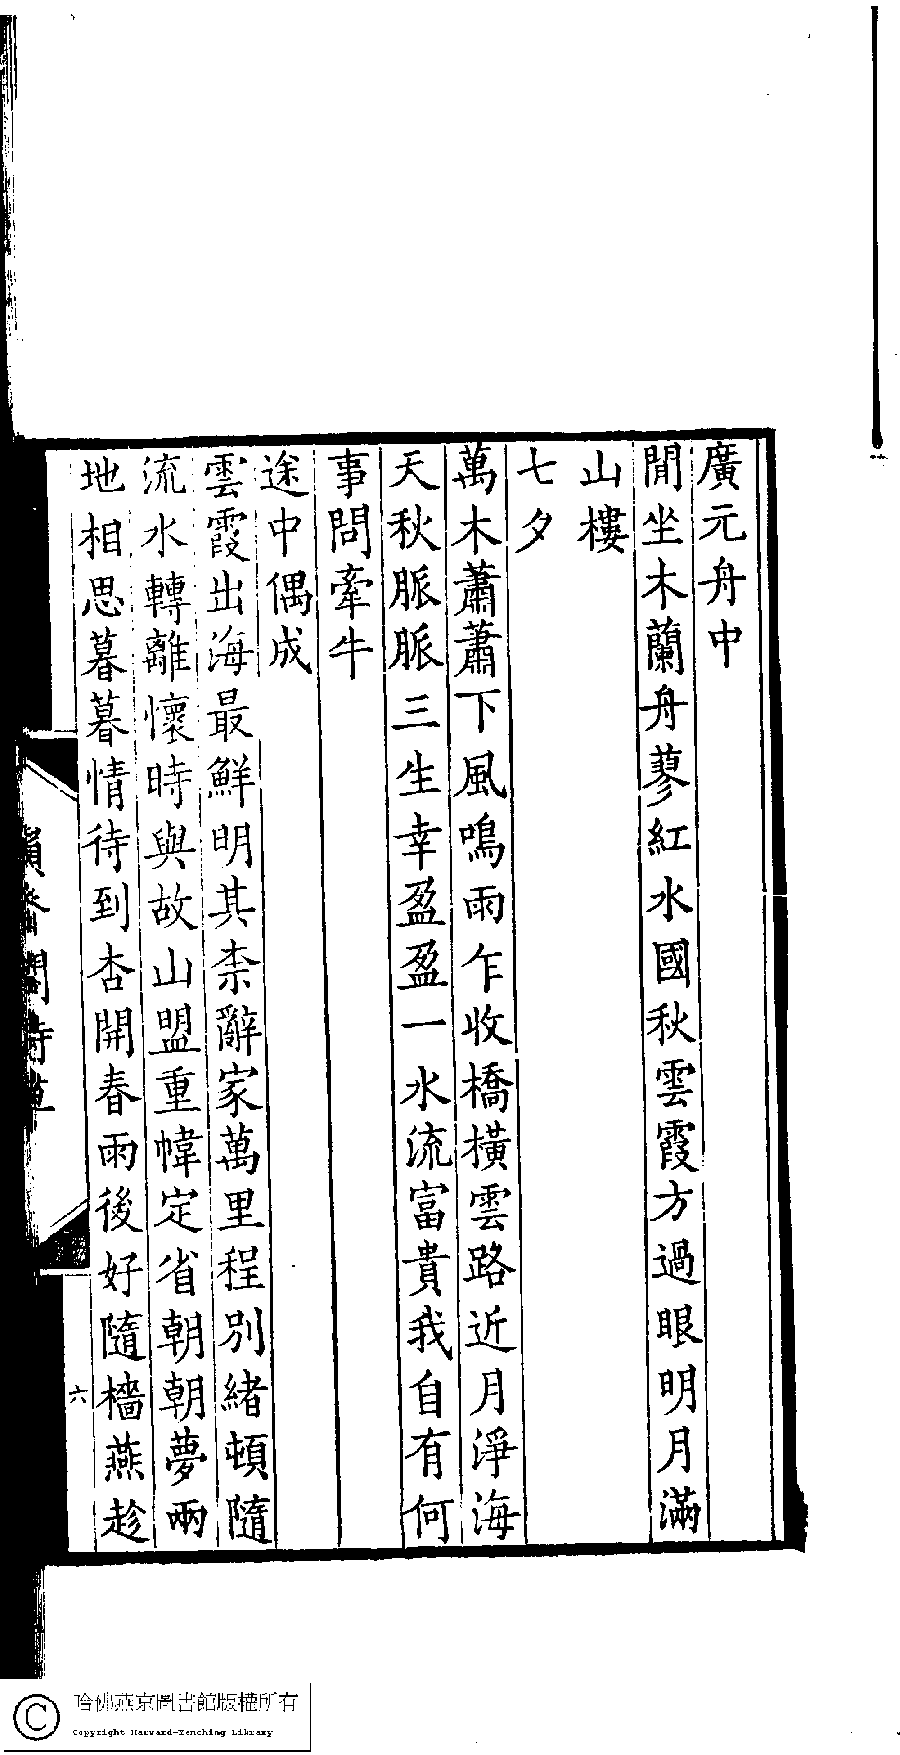 廣元舟中
閒坐木蘭舟蓼紅水國秋雲霞方過眼明月滿
山樓
七夕
萬木蕭蕭下風鳴雨乍收橋橫雲路近月淨海
天秋脈脈三生幸盈盈一水流富貴我自有何
事問牽牛
途中偶成
雲霞出海最鮮明其柰辭家萬里程別緒頓隨
流水轉離懷時與故山盟重幃定省朝朝夢兩
地相思暮暮情待到杏開春雨後好隨檣燕趁
六
哈佛燕京圖書館版權所有
Copyright Harvard-Yenching Library